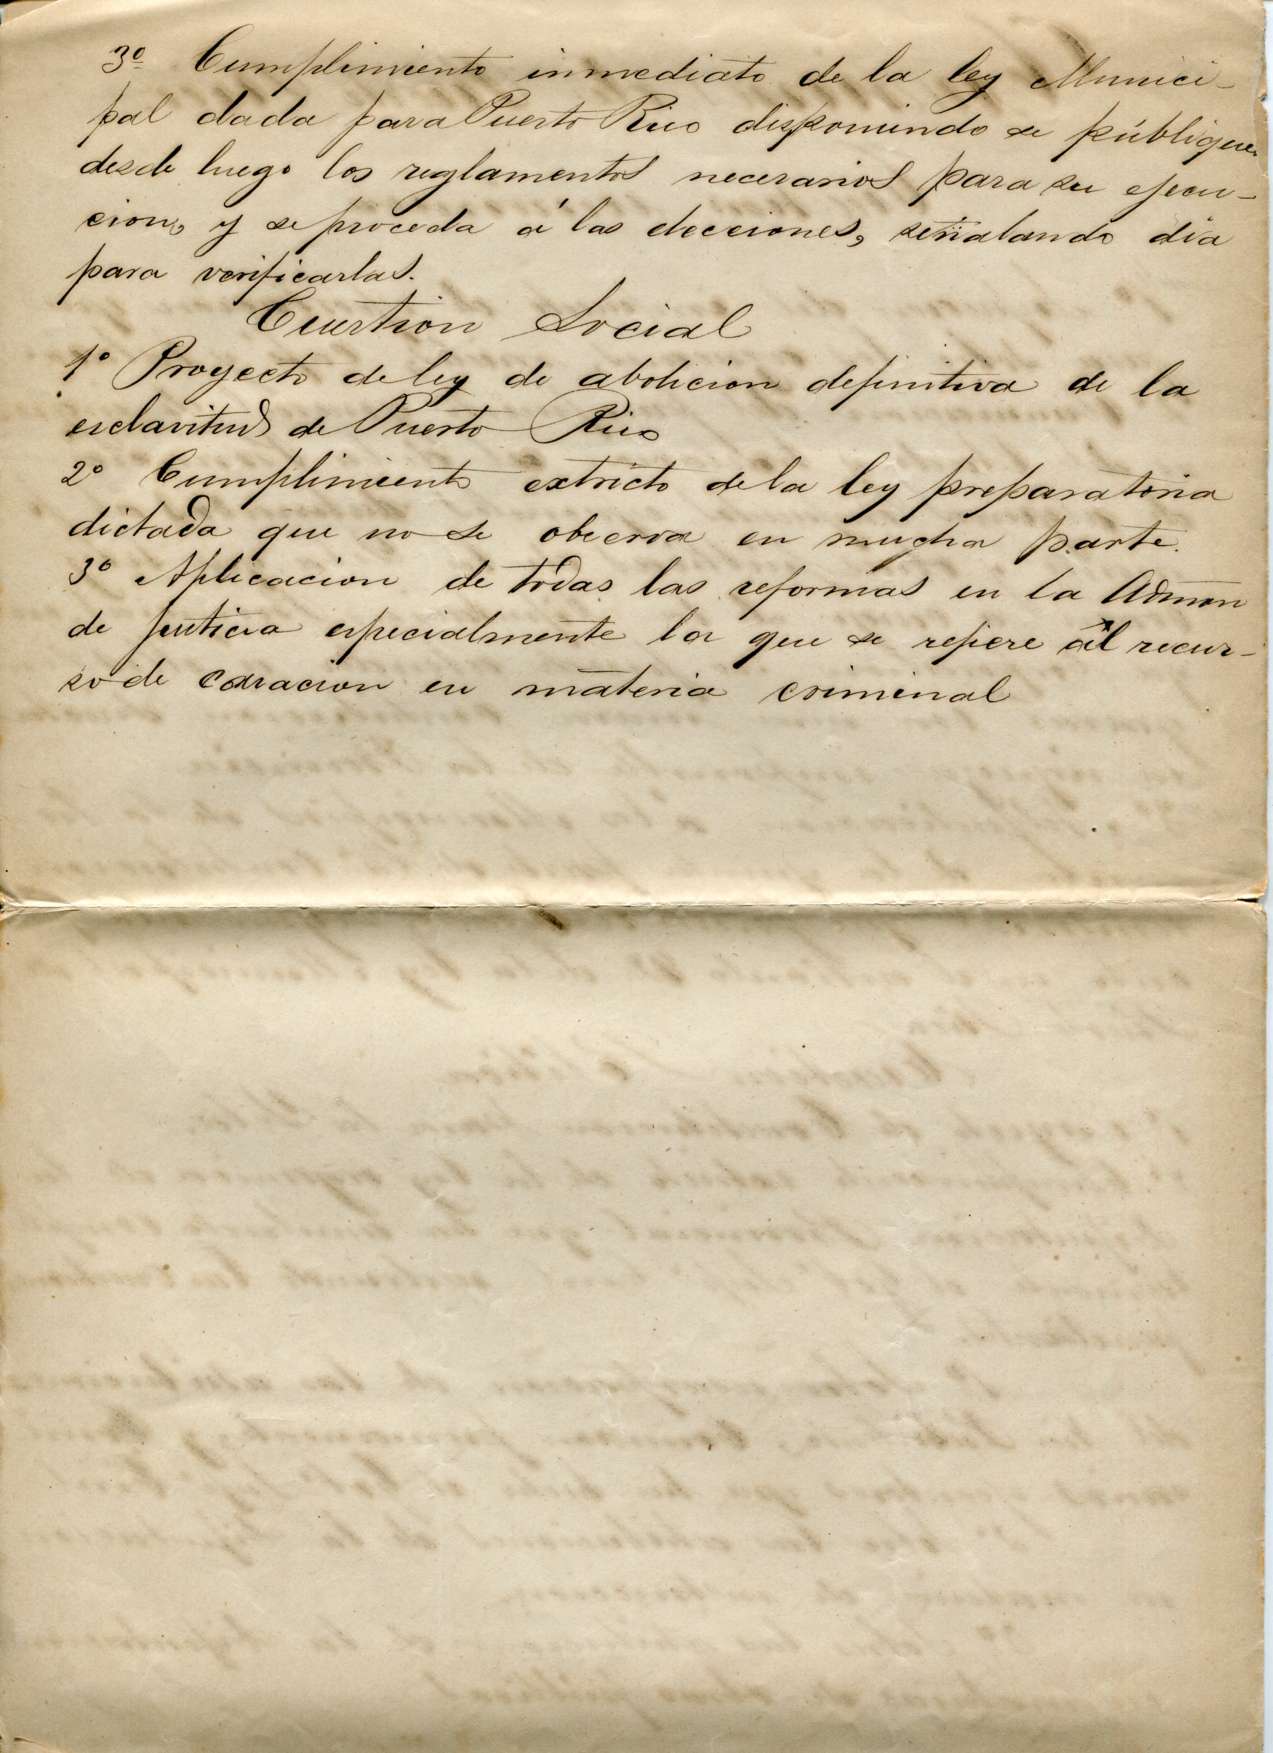 3º Cumplimiento inmediato de la ley Munici-
pal dada para Puerto Rico disponiendo se públiquen
desde luego los reglamentos necesarios para su ejecu-
cion, y se proceda á las elecciones, señalando dia
para verificarlas.
Cuestion Social
1º Proyecto de ley de abolicion definitiva de la
esclavitud de Puerto Rico
2º Cumplimiento extricto de la ley preparatoria
dictada que no se observa en mucha parte.
3º Aplicacion de todas las reformas en la Admon
de justicia especialmente la que se refiere al recur-
so de casacion en materia criminal